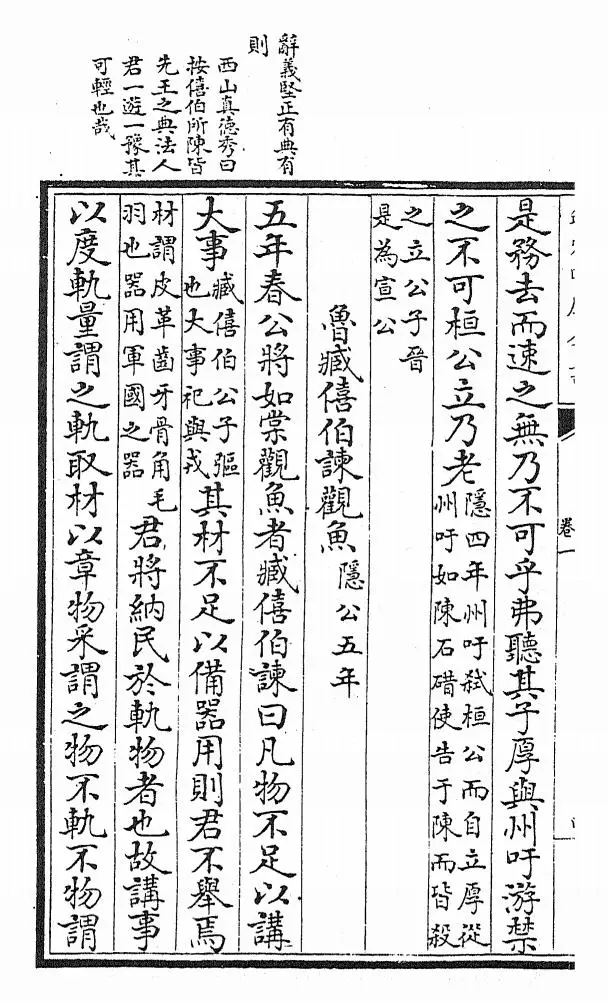 辭義堅正有典有
則
西山真德秀曰
按僖伯所陳皆
先王之典法人
君一遊一豫其
可輕也哉
卷一
是務去而速之無乃不可乎弗聽其子厚與州吁游禁
之不可桓公立乃老
隱四年州吁弒桓公而自立厚從
州吁如陳石碏使告于陳而皆殺
之立公子晉
是為宣公
魯臧僖伯諫觀魚隱公五年
五年春公將如棠觀魚者臧僖伯諫曰凡物不足以講
大事
臧僖伯公子彄
也大事祀與戎
其材不足以備器用則君不舉焉
材謂皮革齒牙骨角毛
羽也器用軍國之器
君將納民於軌物者也故講事
以度軌量謂之軌取材以章物采謂之物不軌不物謂